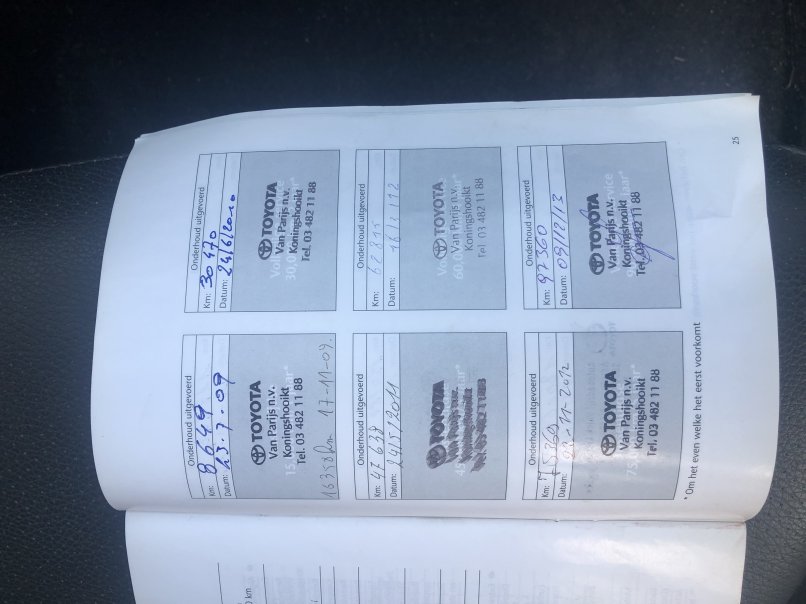 0 km
Onderhoud uitgevoerd
Km: 8649
Datum: 23.7.09
TOYOTA
Van Parijs n.v.
Koningshooikt
Tel. 03 482 11 88
16398km 17-11-09.
Onderhoud uitgevoerd
Km: 30 470
Datum: 24/6/2010
TOYOTA
Van Parijs n.v.
Koningshooikt
Tel. 03 482 11 88
Onderhoud uitgevoerd
Km: 47 638
Datum: 24/5/2011
TOYOTA
Van Parijs n.v.
Koningshooikt
Tel. 03 482 11 88
Onderhoud uitgevoerd
Km:
Datum:
TOYOTA
Van Parijs n.v.
Koningshooikt
Tel. 03 482 11 88
Onderhoud uitgevoerd
Km: 75360
Datum: -11-2012
TOYOTA
Van Parijs n.v.
Koningshooikt
Tel. 03 482 11 88
Onderhoud uitgevoerd
Km: 92360
Datum: 09/12/13
TOYOTA
Van Parijs n.v.
Koningshooikt
Tel. 03 482 11 88
* Om het even welke het eerst voorkomt
25